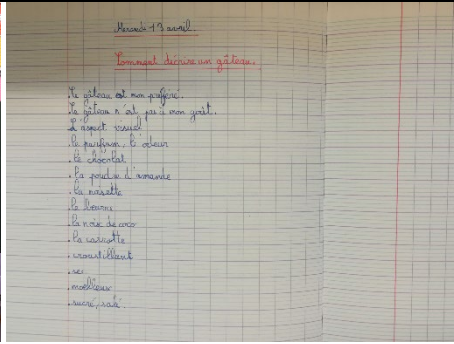 Mercredi 13 avril
Comment décrire un gâteau.
. Le gâteau est mon préféré.
. Le gâteau n'est pas à mon goût.
. L'aspect visuel
. le parfum, l'odeur
. le chocolat
. la poudre d'amande
. la noisette
. le beurre
. la noix de coco
. la
. croustillant
. sec
. moelleux
. sucré, salé.